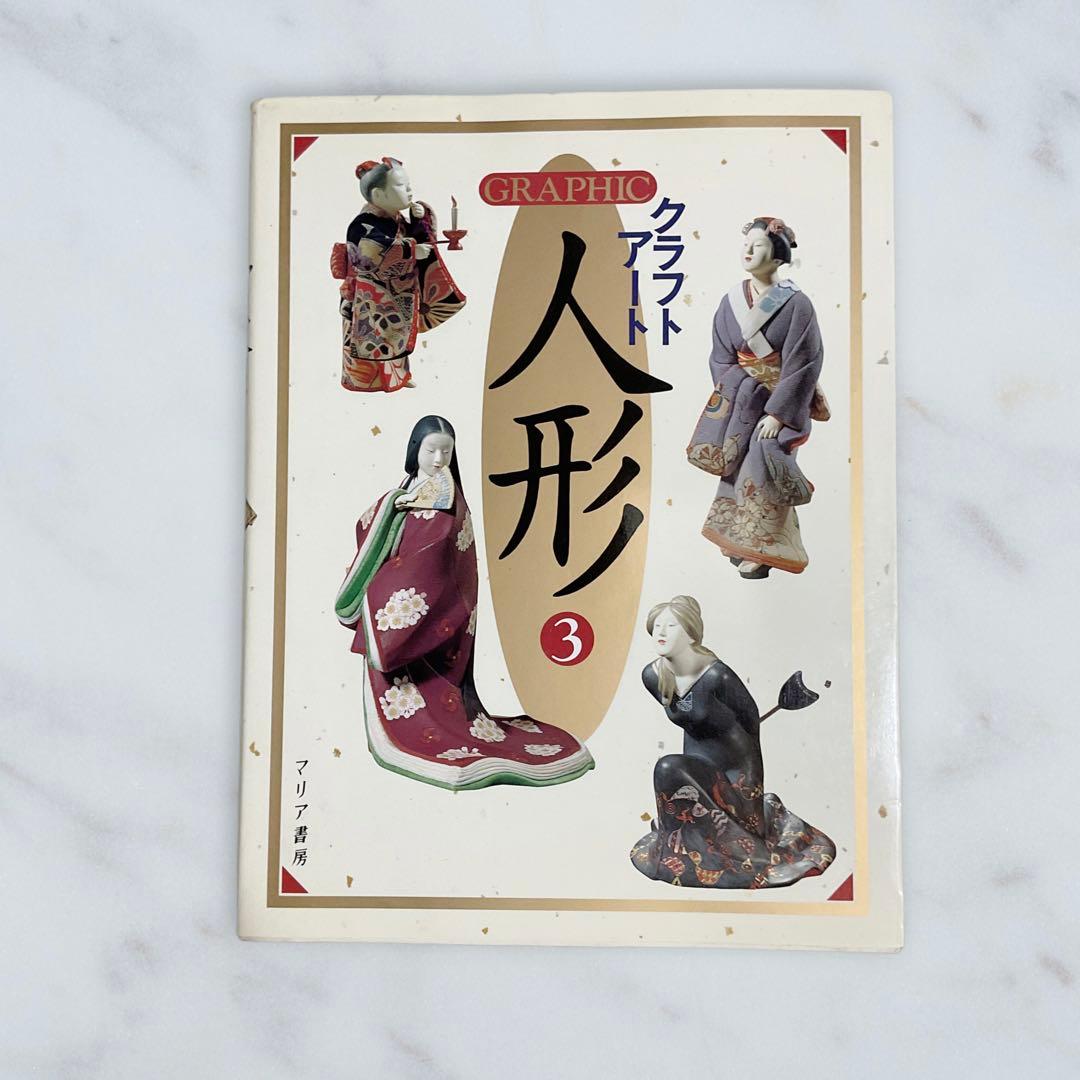 GRAPHIC
クラフト
アート
人形
3
マリア書房